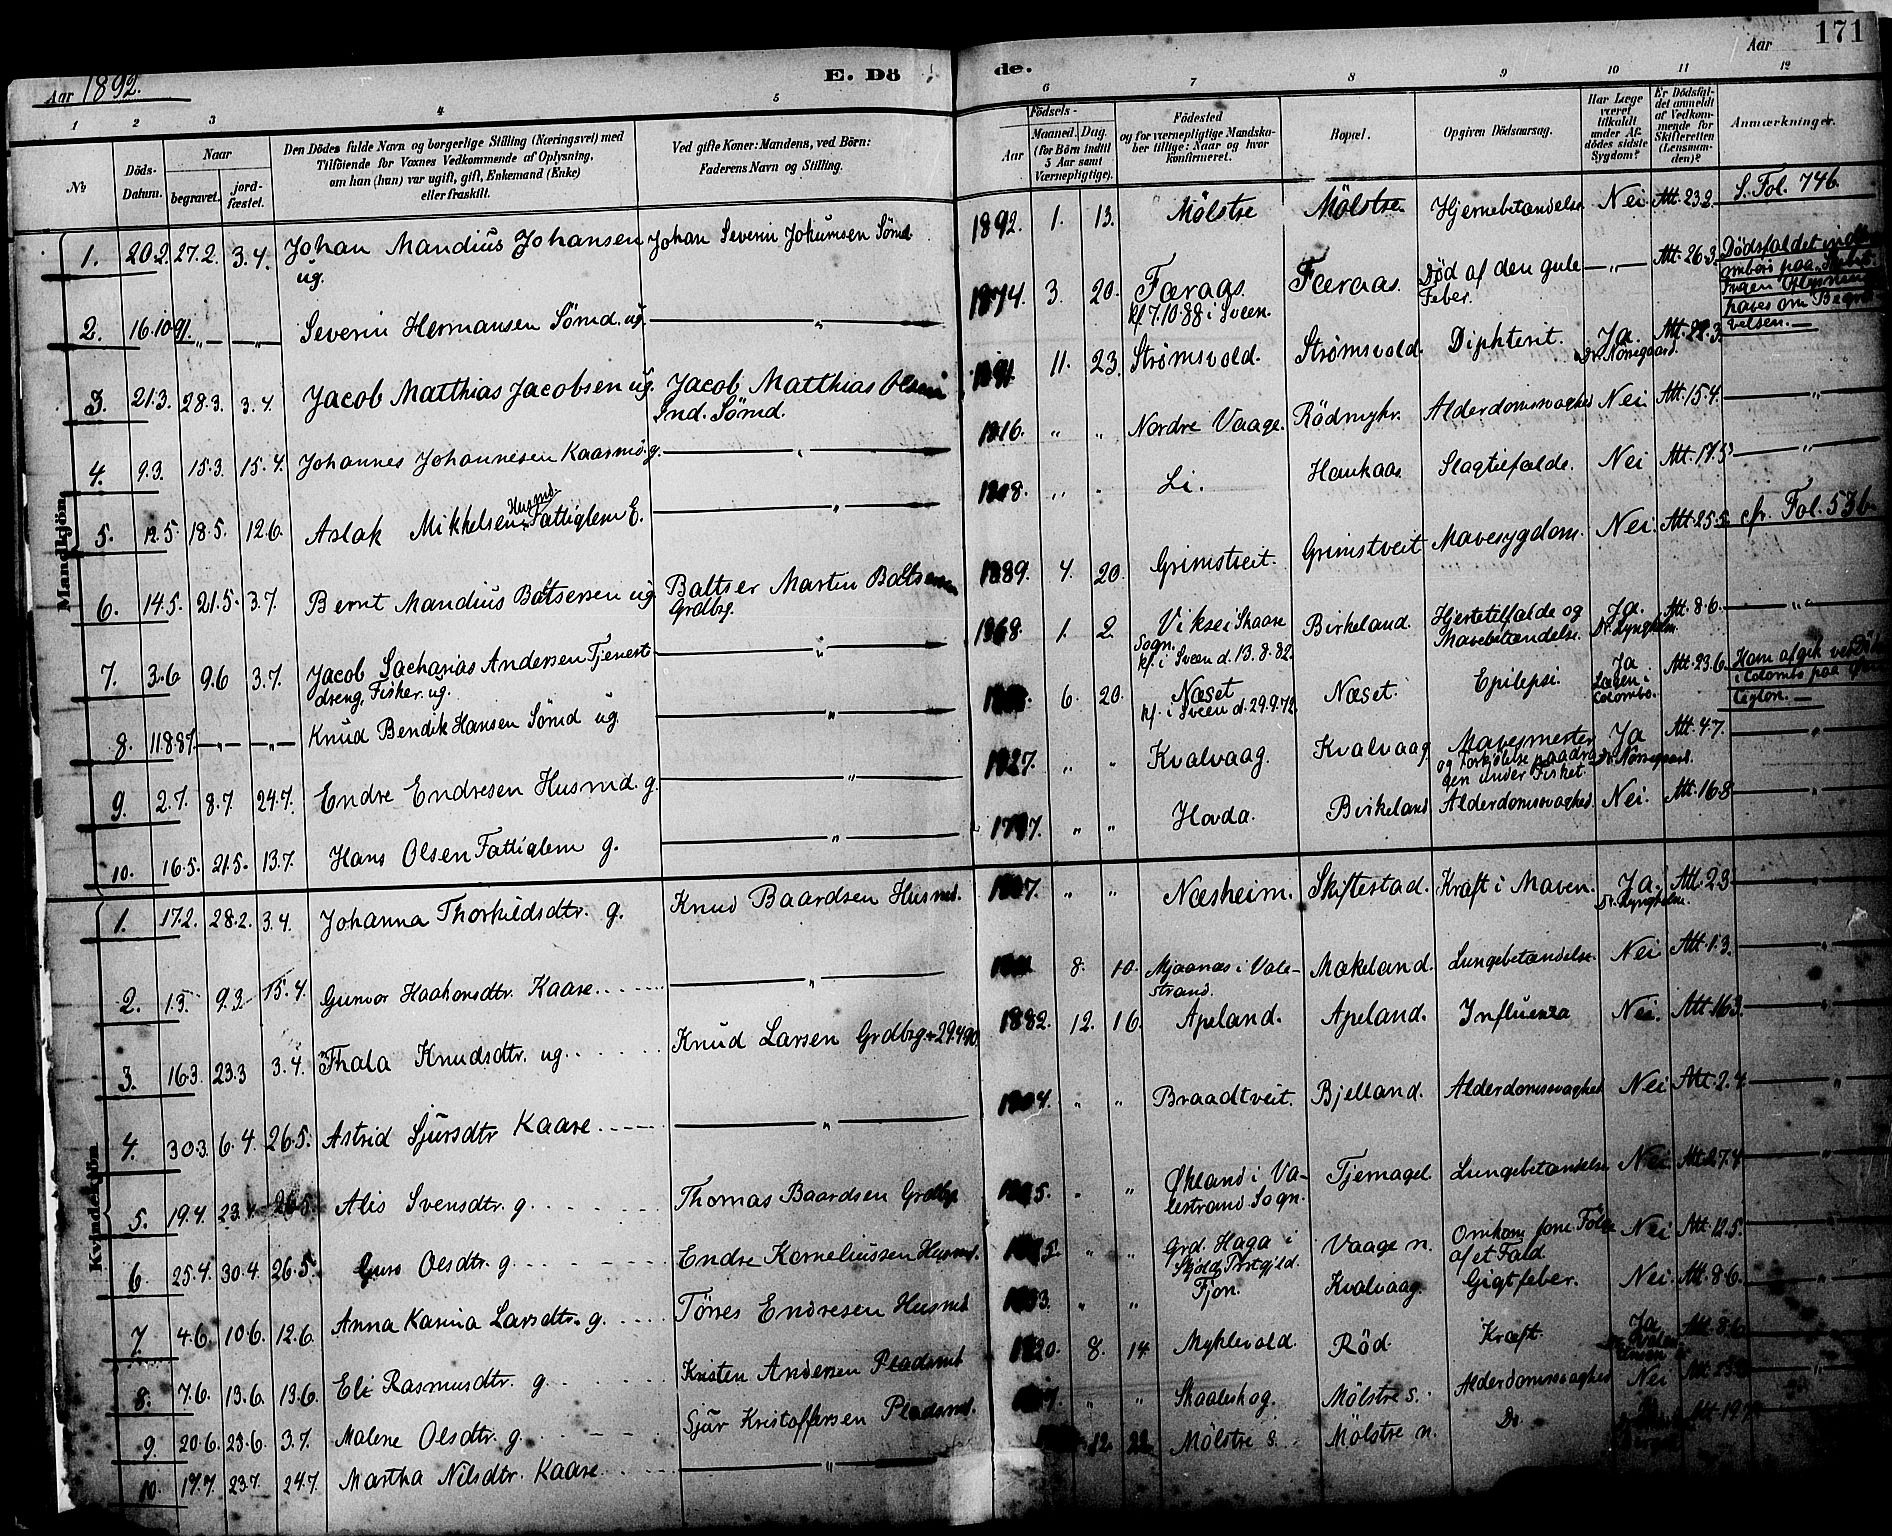 Aar 1892.
E. Dö
de.
Aar
171
1 2 3 4 5
6 7 8 9 10 11 12
No
Döds-Datum.
Naar
begravet.
jord-fæstet.
Den Dödes fulde Navn og borgerlige Stilling (Næringsvei) med
Tilföiende for Voxnes Vedkommende af Oplysning,
om han (hun) var ugift, gift, Enkemand (Enke)
eller fraskilt.
Ved gifte Koner: Mandens, ved Börn:
Faderens Navn og Stilling.
Födsels-
Aar
Maaned. Dag.
(for Börn indtil
5 Aar samt
Værnepligtige).
Födested
og for værnepligtige Mandska-
ber tillige: Naar og hvor
konfirmeret.
Bopæl.
Opgiven Dödsaarsag.
Har Læge
været
tilkaldt
under Af-
dödes sidste
Sygdom?
Er Dödsfal-
det anmeldt
af Vedkom-
mende for
Skifteretten
(Lensman-
den)?
Anmærkninger.
Mandkjön
1. 20.2. 27.2. 3.4. Johan Mandius Johansen ug. Johan Severin Jokumsen Sömd. 1892. 1. 13. Mölstre Mölstre Hjernebetændelse Nei Att. 23.2. S. Fol. 746
2. 16.10.91. „ „ Severin Hermansen Sömd. ug. „ 1874. 3. 20. Færaas. kf. 7.10.88 i Sveen. Færaas. Död af den gule Feber. „ Att. 26.3. Dödsfaldet
ombord paa
Ingen Oplysning
haves om Begra-
velsen.
3. 21.3. 28.3. 3.4. Jacob Matthias Jacobsen ug. Jacob Matthias Olsen Ind. Sömd. 1891 11. 23. Strömsvold. Strömsvold. Diphterit. Ja. Dr. Nörregaard.
4. 9.3. 15.3. 15.4. Johannes Johannesen Kaarmd. g. „ 1816. „ „ Nordre Vaage. Rödmyhr. Alderdomssvaghed Nei Att. 15.4. „
5. 12.5. 18.5. 12.6. Aslak Mikkelsen Husmd. Fattiglem E. „ 1808. „ „ Li. Haukaas Slagtilfælde. Nei Att. 17.5 „
6. 14.5. 21.5. 3.7. Bernt Mandius Baltsersen ug. Baltser Martin Baltsersen Grdbrg. 1889. 4. 20. Grimstveit. Grimstveit Mavesygdom. Nei Att. 25.5. cfr. Fol. 536.
7. 3.6 9.6 3.7. Jacob Sacharias Andersen Tjeneste-
dreng, Fisker. ug. „ 1868. 1. 2. Vikse i Skaare Sogn.
kf. i Sveen d. 13.8.82. Birkeland Hjertetilfælde og
Mavebetændelse. Ja. Dr. Lyngholm. Att. 8.6. „
8. 11.8.87. „ „ Knud Bendik Hansen Sömd ug. „ 6. 20. Næset
kf. i Sveen d. 29.9.72. Næset. Epilepsi. Ja
Lægen i
Colombo. Att. 23.6. Ham afgik ved
i Colombo paa
Ceylon.
9. 2.7. 8.7. 24.7. Endre Endresen Husmd. g. „ 1827. „ „ Kvalvaag. Kvalvaag Mavesmerter
og Forkjölelse paadra-
gen under Fisket. Ja Dr. Nörregaard. Att. 4.7. „
10. 16.5. 21.5. 13.7. Hans Olsen Fattiglem g. „ 1797. „ „ Hovda. Birkeland Alderdomssvaghed. Nei. Att. 16.8 „
Kvindekjön
1. 17.2. 28.2. 3.4. Johanna Thorkildsdtr. g. Knud Baardsen Husmd. „ „ Næsheim. Skiftestad. Kræft i Maven. Ja. Dr. Lyngholm. Att. 2.3 „
2. 1.3. 9.3. 15.4. Gunvor Haakonsdtr. Kaare. „ 8. 10. Mjaanæs i Vale-
strand. Mækeland. Lungebetændelse. Nei Att. 1.3. „
3. 16.3. 23.3 3.4. Thala Knudsdtr. ug. Knud Larsen Grdbrg. + 29.4.90. 1882. 12. 16. Apeland. Apeland. Influenza Nei. Att. 16.3. „
4. 30.3. 6.4. 26.5. Astrid Sjursdtr Kaare „ 1804. „ „ Braadtveit. Bjelland. Alderdomssvaghed Nei Att. 2.4. „
5. 19.4. 23.4. 26.5. Alis Svensdtr. g. Thomas Baardsen Grdbrg. „ „ Økland i Va-
lestrand Sogn. Tjernagel. Lungebetændelse Nei Att. 27.4 „
6. 25.4. 30.4. 26.5. Guro Olsdtr. g. Endre Korneliussen Husmd. „ „ Grd. Haga i
Skjold Prstgjld. Vaage n. Omkom som Fölge
af et Fald Nei Att. 12.5. „
7. 4.6. 10.6. 12.6. Anna Karina Larsdtr. g. Törres Endresen Husmd. „ „ Fjon. Kvalvaag. Gigtfeber. Nei. Att. 8.6. „
8. 7.6. 13.6. 13.6. Eli Rasmusdtr. g. Kristen Andersen Pladsmd. 1820. 8. 14. Myklevold. Röd Kræft. Ja Att. 8.6 „
9. 20.6. 23.6. 3.7. Malene Olsdtr. g. Sjur Kristoffersen Pladsmd. „ „ Skaaleskog. Mölstre s. Alderdomssvaghed Nei „
10. 17.7. 23.7. 24.7. Martha Nilsdtr. Kaare „ 12. 22. Mölstre s. Mölstre n. Do